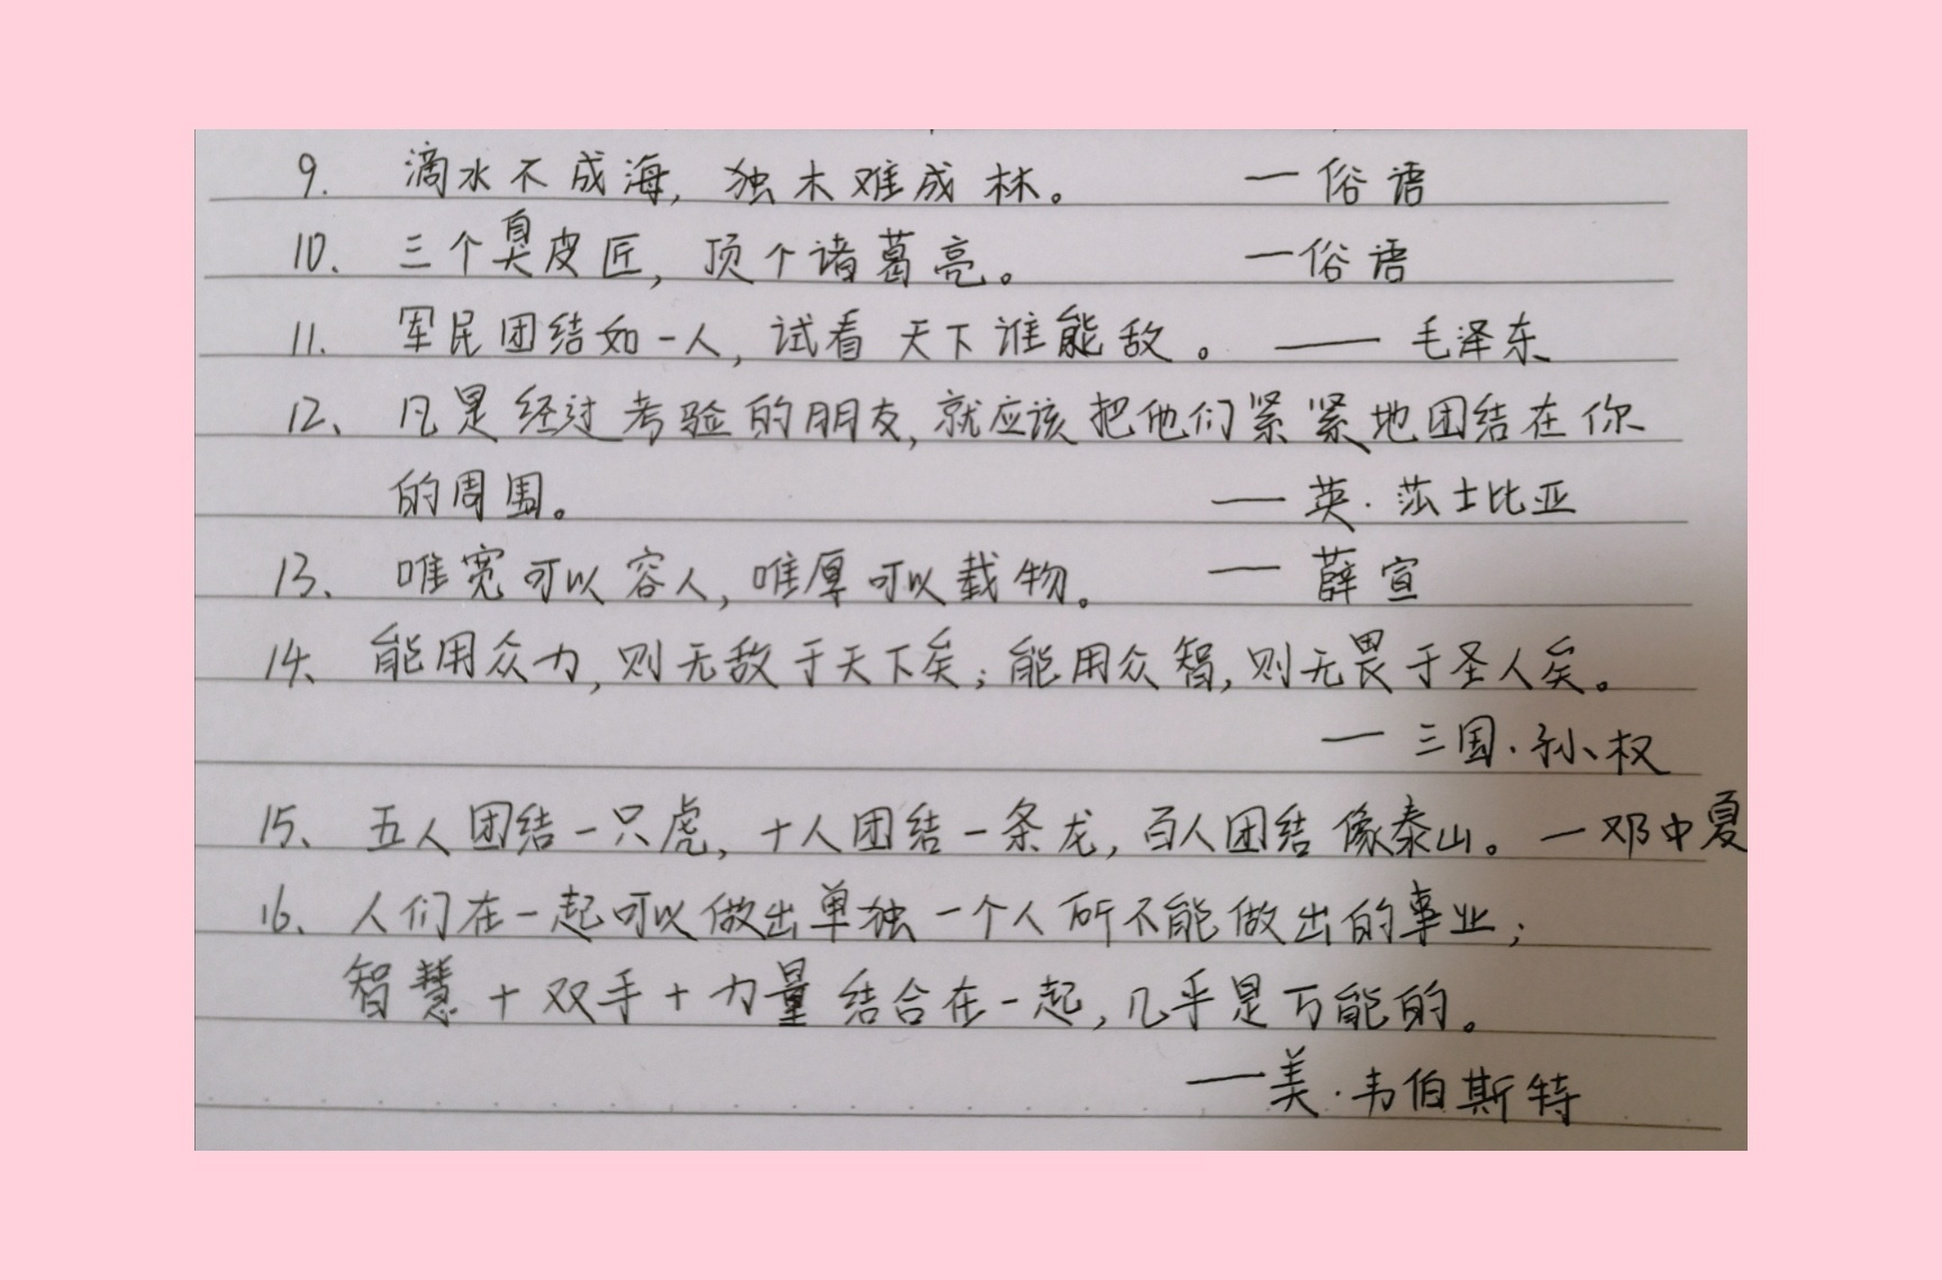 9. 滴水不成海，独木难成林。 — 俗语
10. 三个臭皮匠，顶个诸葛亮。 — 俗语
11. 军民团结如一人，试看天下谁能敌。 —— 毛泽东
12、凡是经过考验的朋友，就应该把他们紧紧地团结在你
的周围。 —— 英·莎士比亚
13、唯宽可以容人，唯厚可以载物。 —— 薛宣
14、能用众力，则无敌于天下矣；能用众智，则无畏于圣人矣。
— 三国·孙权
15、五人团结一只虎，十人团结一条龙，百人团结像泰山。 — 邓中夏
16、人们在一起可以做出单独一个人所不能做出的事业；
智慧+双手+力量结合在一起，几乎是万能的。
—— 美·韦伯斯特